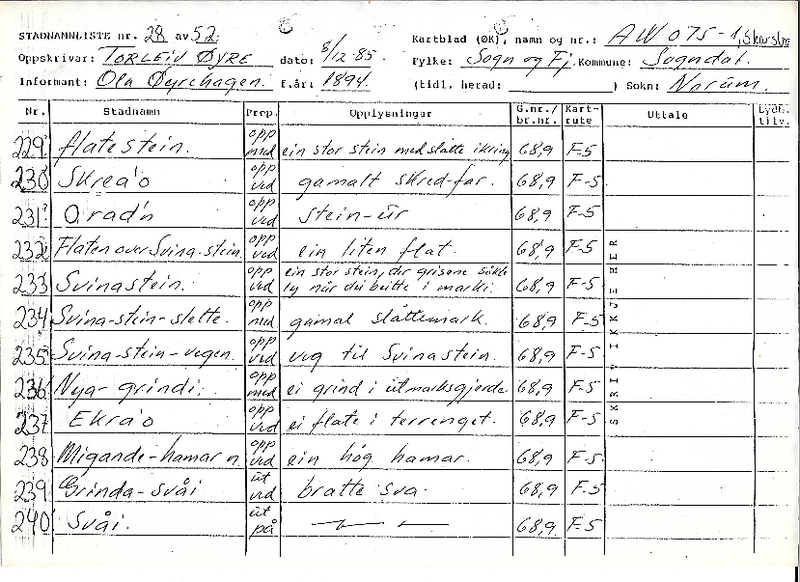 STADNAMNLISTE nr. 28 av 52. Kartblad (ØK), namn og nr.: AW 075-1,
Oppskrivar: TORLEIV ØYRE dato: 8/12-85. Fylke: Sogn og Fj. Kommune: Sogndal.
Informant: Ola Øyrehagen. F.år: 1894. (tidl. herad: ) Sokn: Norum.
Nr. Stadnamn Prep. Opplysningar G.nr./br.nr. Kart-rute Uttale Lydb. tilv.
229 flatestein. opp med ein stor stein med slåtte ikring 68,9 F-5
230 Skrea'o opp ved gamalt skred-far. 68,9 F-5
231 Orad'n opp ved stein-ur 68,9 F-5
232 Flaten over Svina-stein. opp ved ein liten flat. 68,9 F-5
233 Svinastein. opp ved ein stor stein, der grisene søkte ly når dei beitte i marki. 68,9 F-5
234 Svina-stein-slette. opp med gamal slåttemark. 68,9 F-5
235 Svina-stein-vegen. opp ved veg til Svinastein. 68,9 F-5
236 Nya-grindi. opp med ei grind i utmarksgjerde 68,9 F-5
237 Ekra'o opp ved ei flate i terrenget. 68,9 F-5
238 Migande-hamar'n. opp ved ein høg hamar. 68,9 F-5
239 Grinda-svåi ut ved bratte sva. 68,9 F-5
240 Svåi. ut på —〃— 68,9 F-5
SKRIV IKKJE HER